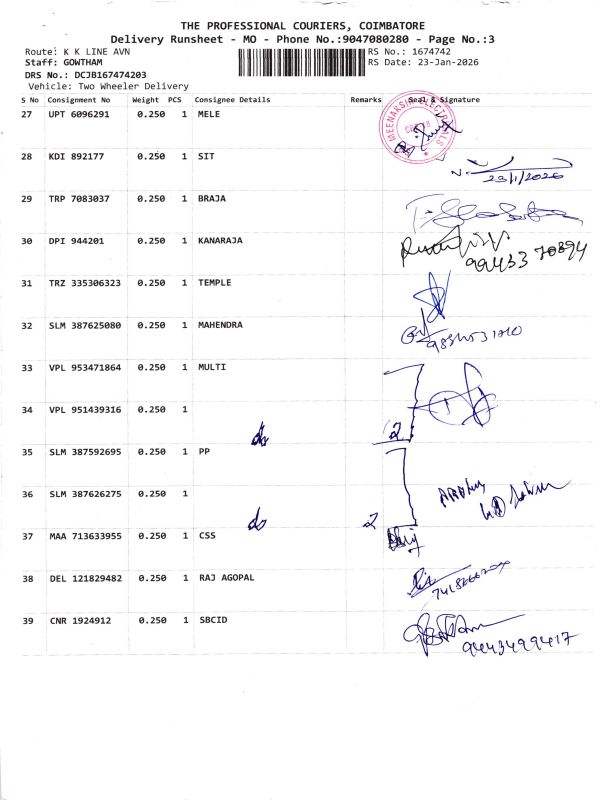 THE PROFESSIONAL COURIERS, COIMBATORE
Delivery Runsheet - MO - Phone No.:9047080280 - Page No.:3
Route: K K LINE AVN RS No.: 1674742
Staff: GOWTHAM RS Date: 23-Jan-2026
DRS No.: DCJB167474203
Vehicle: Two Wheeler Delivery
S No Consignment No Weight PCS Consignee Details Remarks Seal & Signature
27 UPT 6096291 0.250 1 MELE
MEENAKSHI ELECTRICALS
28 KDI 892177 0.250 1 SIT
23/1/2026
29 TRP 7083037 0.250 1 BRAJA
30 DPI 944201 0.250 1 KANARAJA
99433 70894
31 TRZ 335306323 0.250 1 TEMPLE
32 SLM 387625080 0.250 1 MAHENDRA
33 VPL 953471864 0.250 1 MULTI
34 VPL 951439316 0.250 1
do 2
35 SLM 387592695 0.250 1 PP
36 SLM 387626275 0.250 1
do 2
37 MAA 713633955 0.250 1 CSS
38 DEL 121829482 0.250 1 RAJ AGOPAL
39 CNR 1924912 0.250 1 SBCID
9443499417